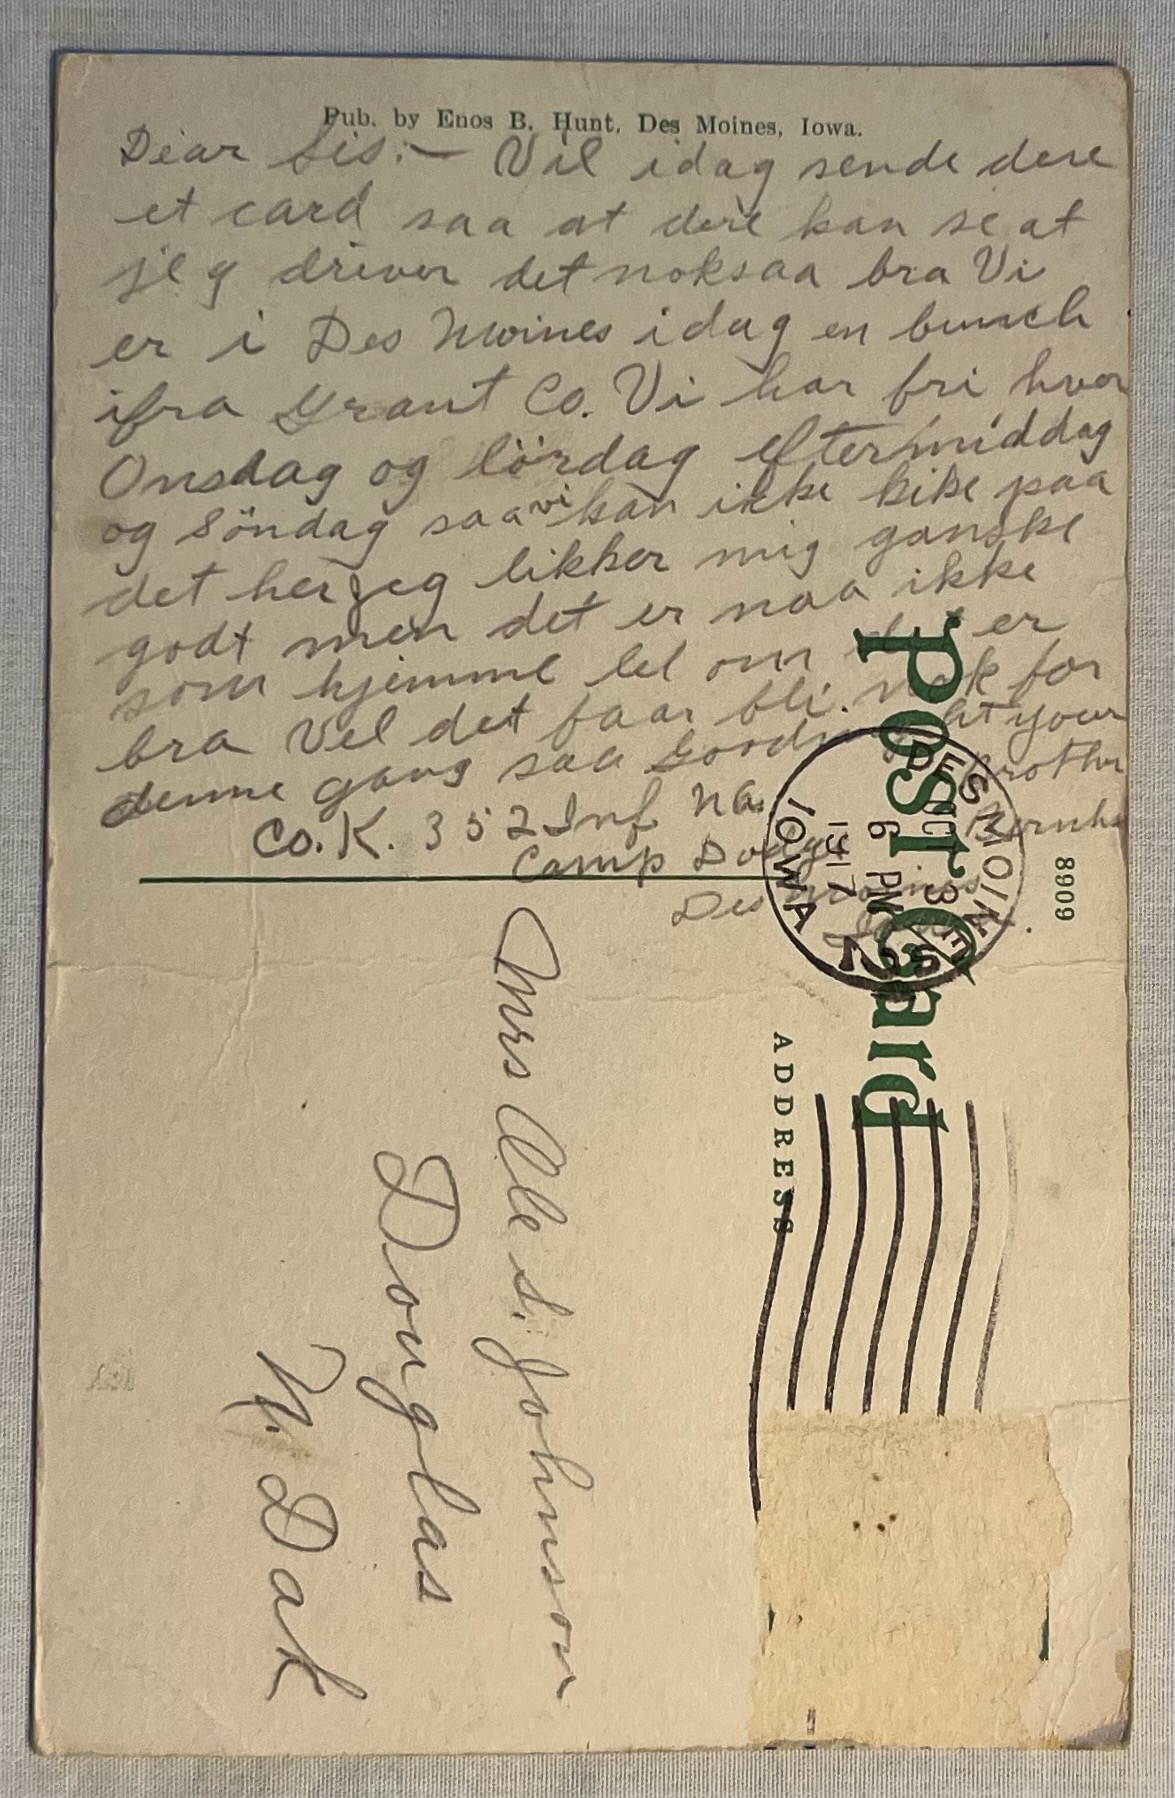 Pub. by Enos B. Hunt, Des Moines, Iowa.
Dear Sis:— Vil idag sende dere
et card saa at dere kan se at
jeg driver det noksaa bra Vi
er i Des Moines idag en bunch
ifra Grant Co. Vi har fri hver
Onsdag og lördag eftermiddag
og Söndag saa vi kan ikke kike paa
det her jeg likker mig ganske
godt men det er naa ikke
som hjemme lel om det er
bra Vel det faar bli. nok for
denne gang saa your
brother
Co. K. 352 Inf NA.
Camp Dodge
Des Moines
Iowa.
Post Card
8909
DES MOINES
OCT 3
6 PM
1917
IOWA
ADDRESS
Mrs Ole S. Johnson
Douglas
N. Dak